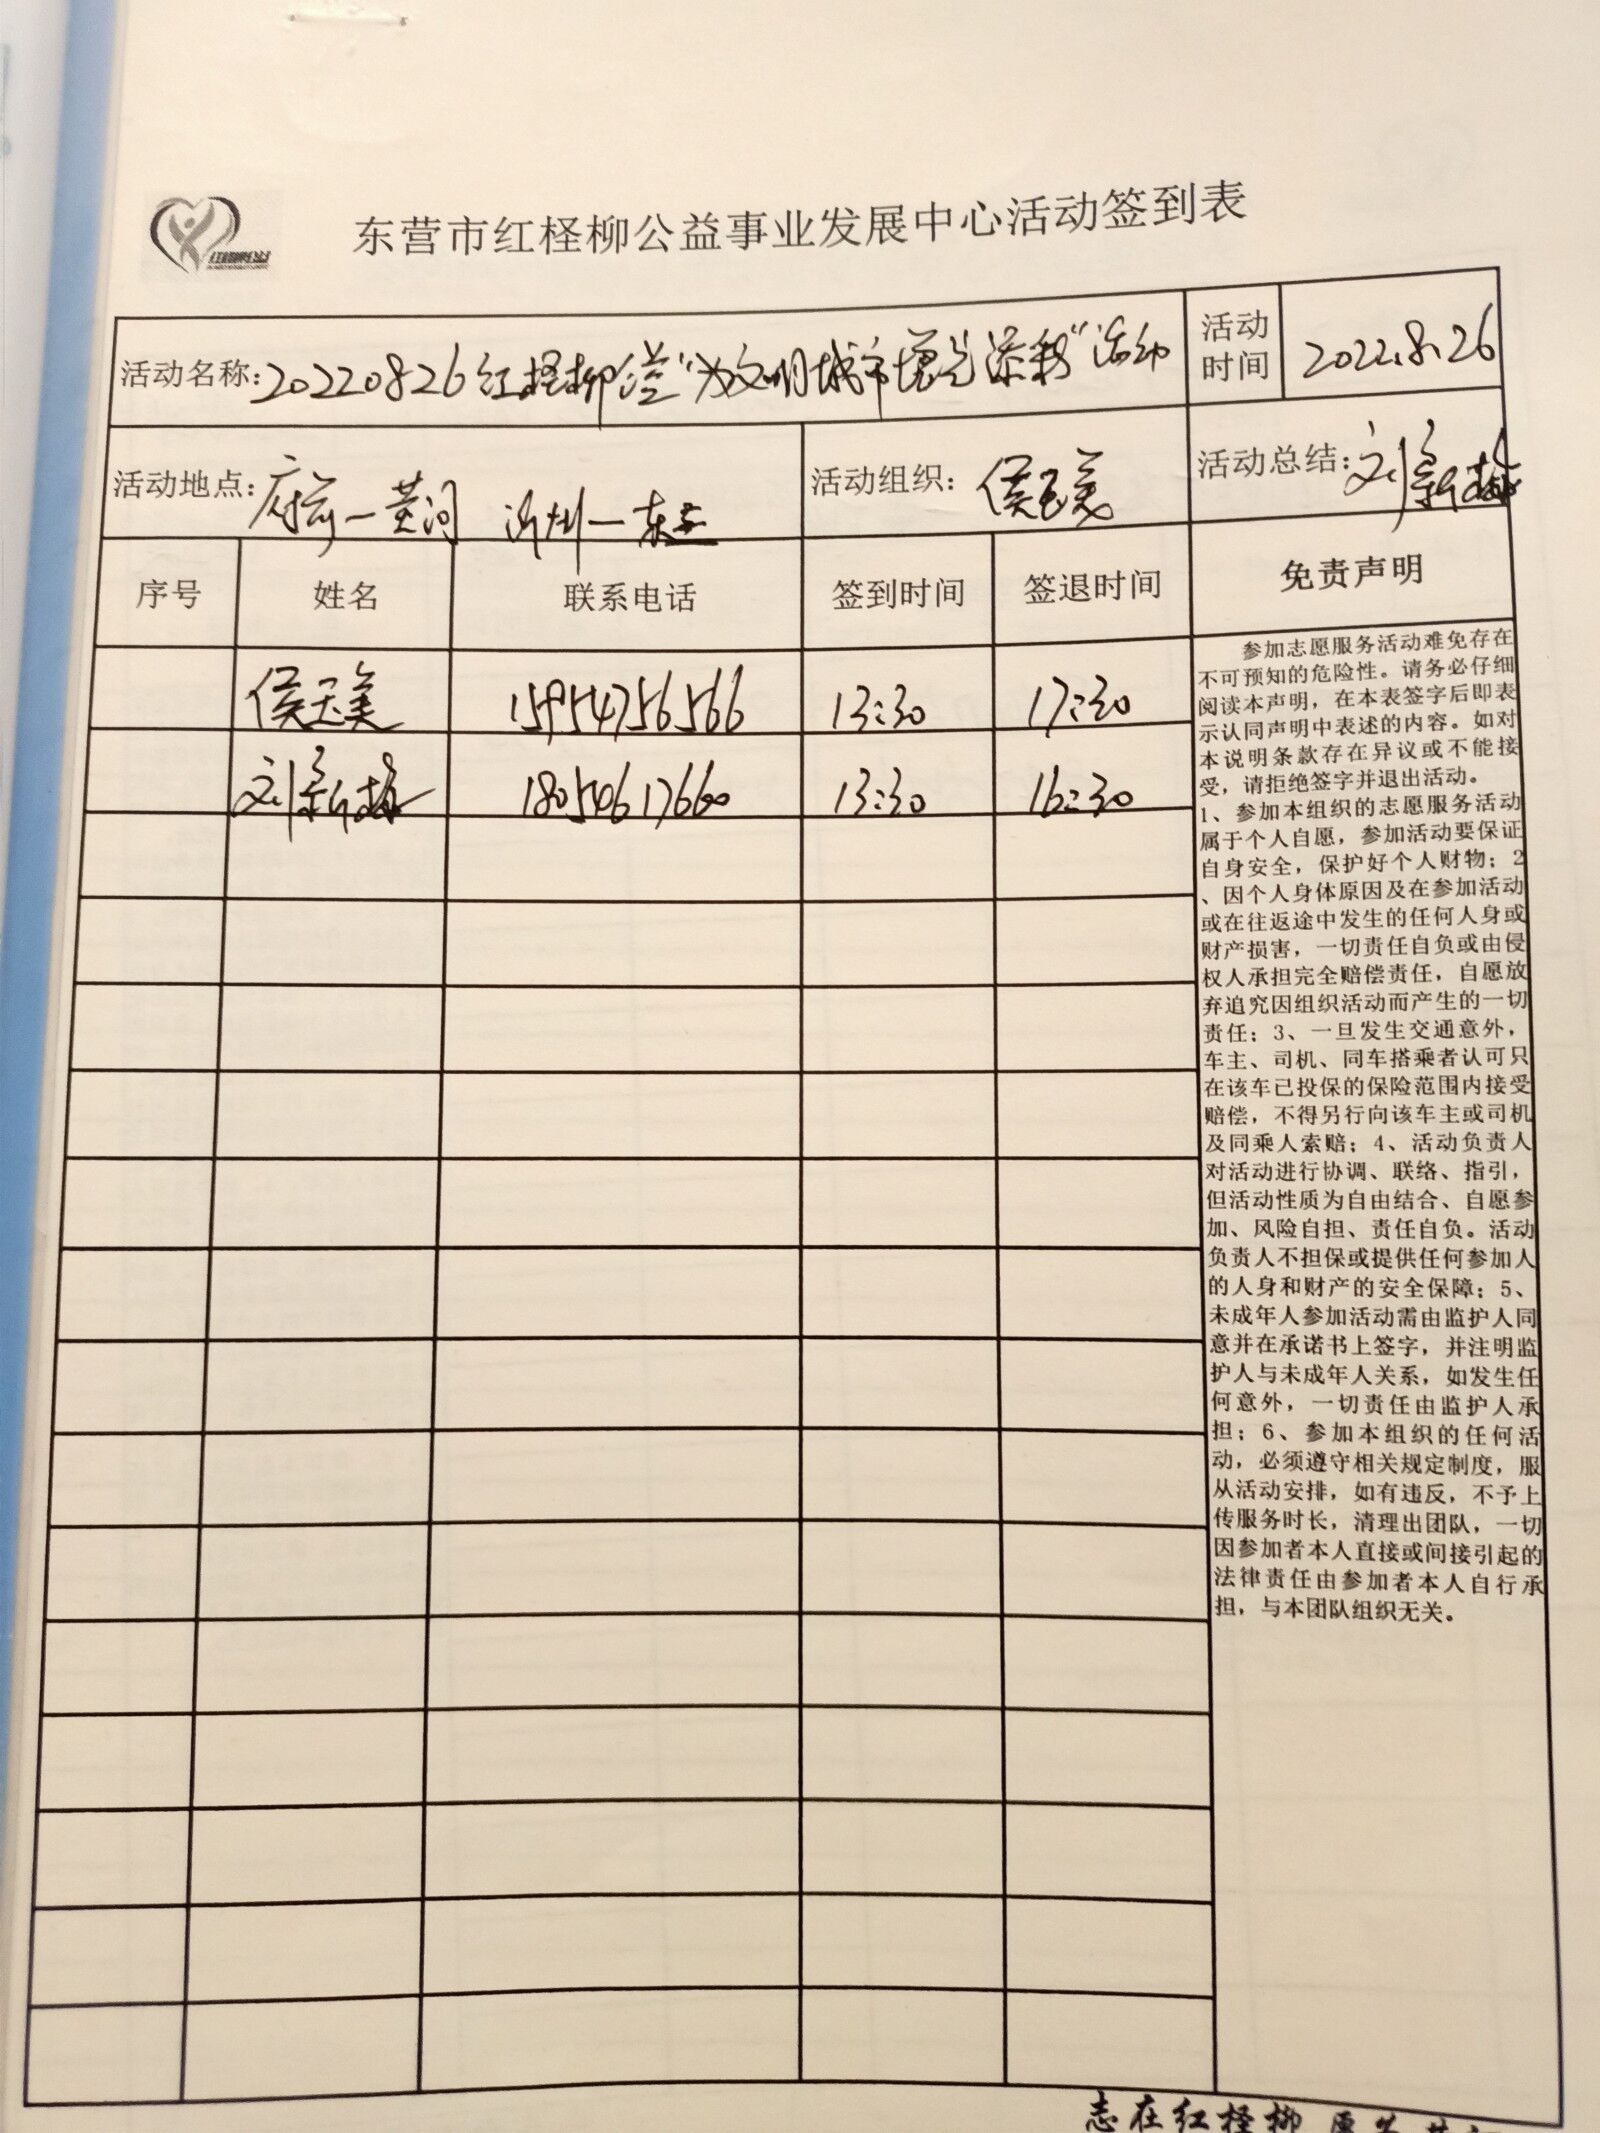 东营市红柽柳公益事业发展中心活动签到表
活动名称:20220826红柽柳公益“为文明城市增光添彩”活动
活动时间 2022.8.26
活动地点:府前—黄河 沂州—东二
活动组织:侯玉美
活动总结:刘新梅
序号 姓名 联系电话 签到时间 签退时间 免责声明
侯玉美 15954756566 13:30 17:30
刘新梅 18054617660 13:30 16:30
参加志愿服务活动难免存在
不可预知的危险性。请务必仔细
阅读本声明，在本表签字后即表
示认同声明中表述的内容。如对
本说明条款存在异议或不能接
受，请拒绝签字并退出活动。
1、参加本组织的志愿服务活动
属于个人自愿，参加活动要保证
自身安全，保护好个人财物；2
、因个人身体原因及在参加活动
或在往返途中发生的任何人身或
财产损害，一切责任自负或由侵
权人承担完全赔偿责任，自愿放
弃追究因组织活动而产生的一切
责任；3、一旦发生交通意外，
车主、司机、同车搭乘者认可只
在该车已投保的保险范围内接受
赔偿，不得另行向该车主或司机
及同乘人索赔；4、活动负责人
对活动进行协调、联络、指引，
但活动性质为自由结合、自愿参
加、风险自担、责任自负。活动
负责人不担保或提供任何参加人
的人身和财产的安全保障；5、
未成年人参加活动需由监护人同
意并在承诺书上签字，并注明监
护人与未成年人关系，如发生任
何意外，一切责任由监护人承
担；6、参加本组织的任何活
动，必须遵守相关规定制度，服
从活动安排，如有违反，不予上
传服务时长，清理出团队，一切
因参加者本人直接或间接引起的
法律责任由参加者本人自行承
担，与本团队组织无关。
志在红柽柳